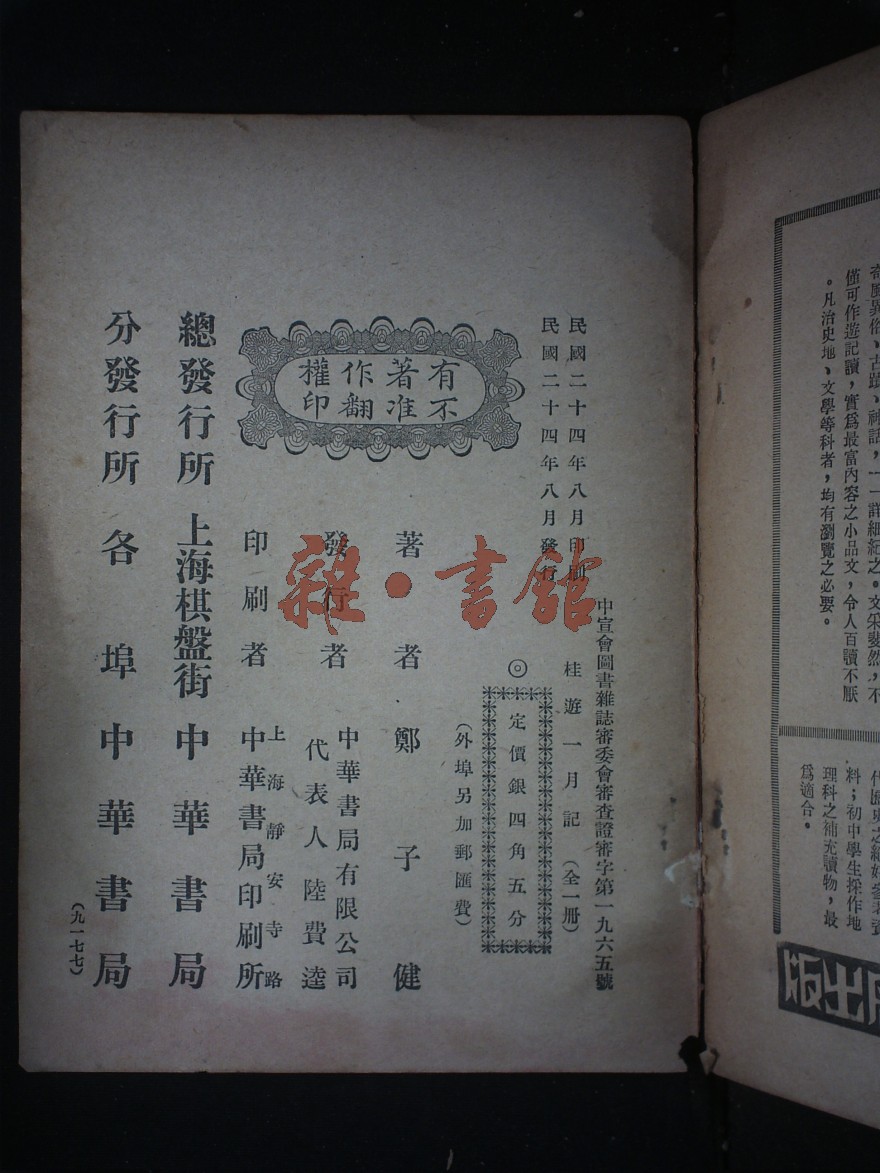 奇風異俗、古蹟、神話，一一詳細紀之。文采斐然，不
僅可作遊記讀，實爲最富內容之小品文，令人百讀不厭
。凡治史地、文學等科者，均有瀏覽之必要。
料；初中學生採作地
理科之補充讀物，最
爲適合。
出版
中宣會圖書雜誌審委會審查證審字第一九六五號
民國二十四年八月印刷
民國二十四年八月發行
桂遊一月記（全一册）
◎定價銀四角五分
（外埠另加郵匯費）
有不
著准
作翻
權印
著者 鄭子健
發行者 中華書局有限公司
代表人 陸費逵
印刷者 上海靜安寺路
中華書局印刷所
總發行所 上海棋盤街 中華書局
分發行所 各埠 中華書局
（九一七七）
雜·書館